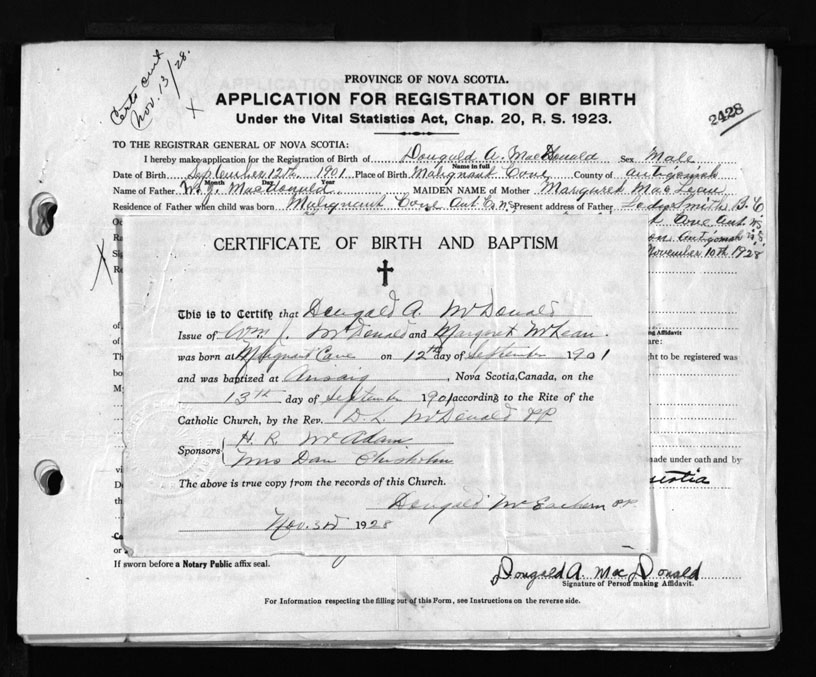 Certs out
Nov. 13/28.
X
PROVINCE OF NOVA SCOTIA.
APPLICATION FOR REGISTRATION OF BIRTH
2428
Under the Vital Statistics Act, Chap. 20, R. S. 1923.
TO THE REGISTRAR GENERAL OF NOVA SCOTIA:
I hereby make application for the Registration of Birth of Dougald A. MacDonald Sex Male
Name in full
Date of Birth September 12th 1901 Place of Birth Malignant Cove County of Antigonish
Month Day Year
Name of Father W. J. MacDonald MAIDEN NAME of Mother Margaret MacLean
Residence of Father when child was born Malignant Cove Ant Co NS Present address of Father Ladysmith B.C.
Cove Ant. N.S.
on Antigonish N.S.
November 10th 1928
X
CERTIFICATE OF BIRTH AND BAPTISM
This is to Certify that Dougald A. McDonald
Issue of Wm J. McDonald and Margaret McLean.
was born at Malignant Cove on 12th day of September 1901
and was baptized at Arisaig, Nova Scotia, Canada, on the
13th day of September 1901 according to the Rite of the
Catholic Church, by the Rev. D. L. McDonald PP
Sponsors H. R. McAdam
Mrs Dan Chisholm
The above is true copy from the records of this Church.
Dougald McEachern PP.
Nov. 3rd 1928
Affidavit
are:
ght to be registered was
made under oath and by
Scotia
If sworn before a Notary Public affix seal.
Dougald A. MacDonald
Signature of Person making Affidavit.
For Information respecting the filling out of this Form, see Instructions on the reverse side.